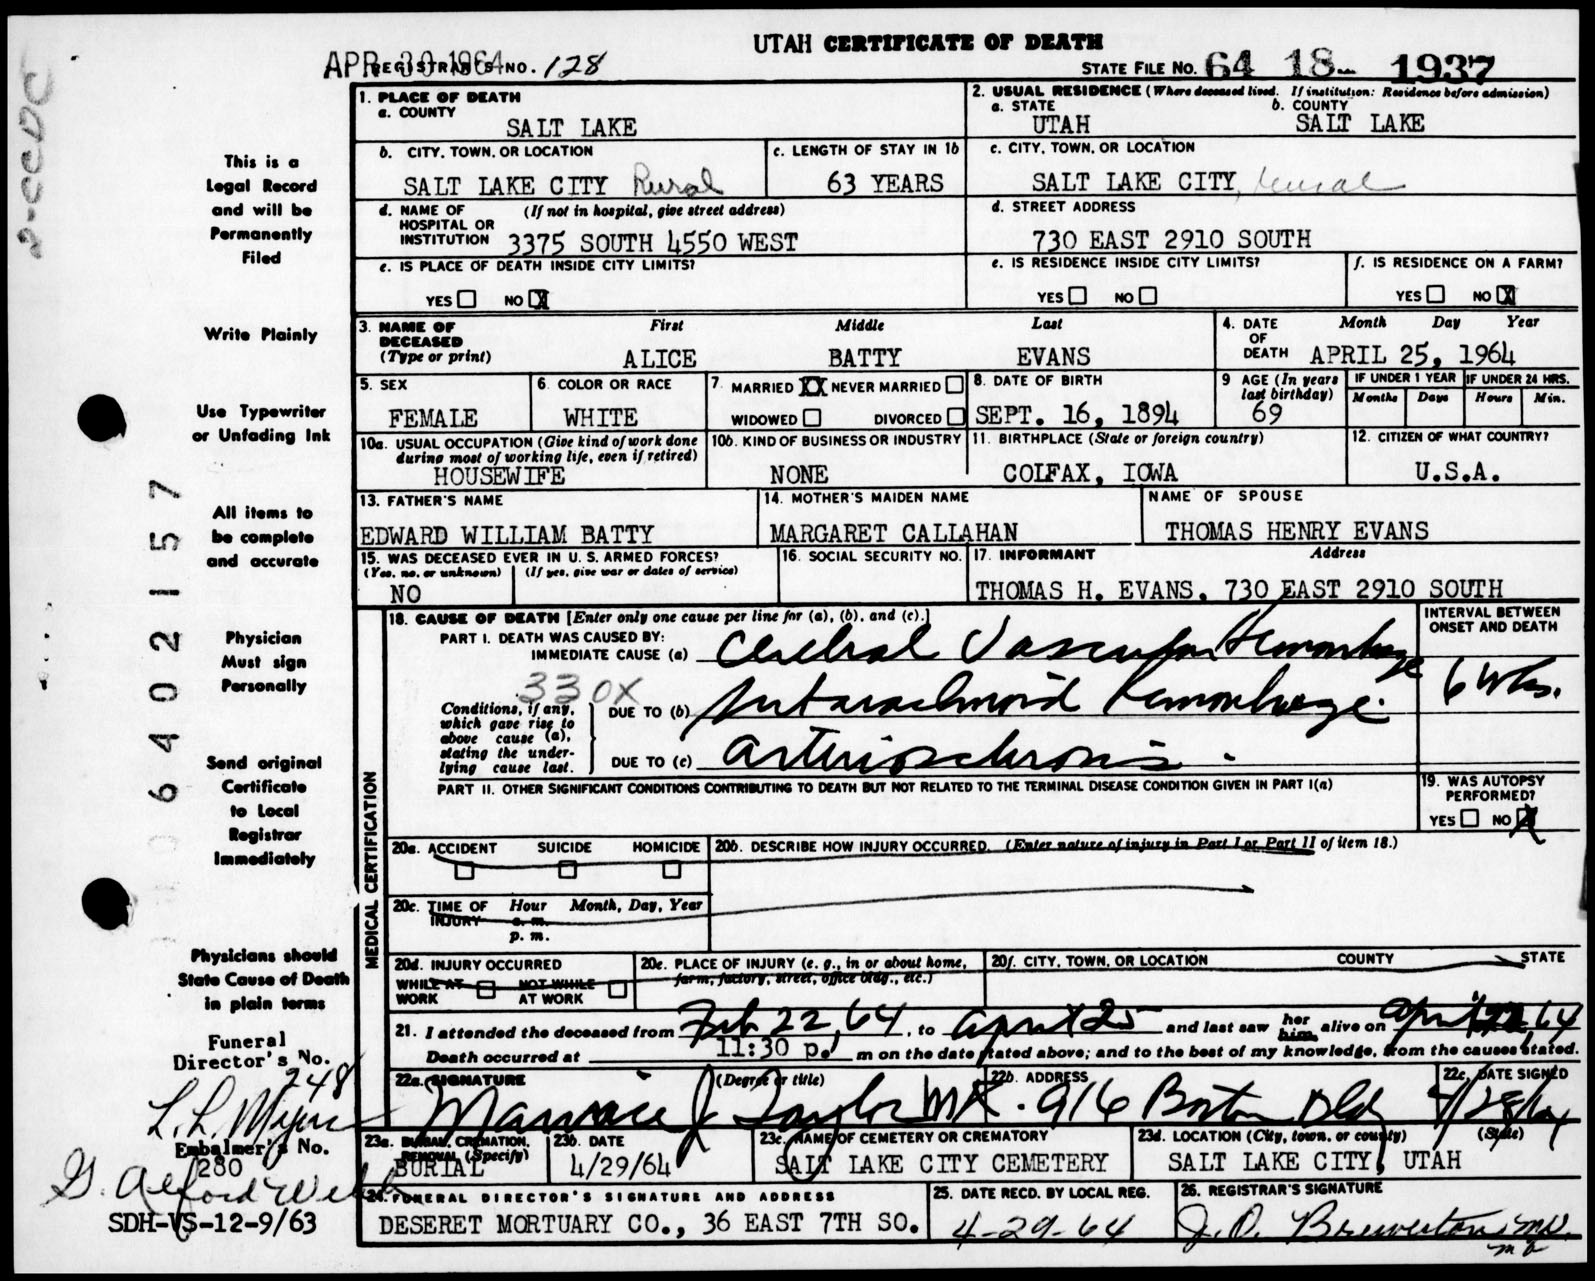 UTAH CERTIFICATE OF DEATH
APR 30 1964
REGISTRAR'S NO. 128
STATE FILE NO. 64 18 1937
2-CCDC
1. PLACE OF DEATH
a. COUNTY
SALT LAKE
2. USUAL RESIDENCE (Where deceased lived. If institution: Residence before admission)
a. STATE b. COUNTY
UTAH SALT LAKE
b. CITY, TOWN, OR LOCATION
SALT LAKE CITY Rural
c. LENGTH OF STAY IN 1b
63 YEARS
c. CITY, TOWN, OR LOCATION
SALT LAKE CITY, rural
d. NAME OF HOSPITAL OR INSTITUTION (If not in hospital, give street address)
3375 SOUTH 4550 WEST
d. STREET ADDRESS
730 EAST 2910 SOUTH
e. IS PLACE OF DEATH INSIDE CITY LIMITS?
YES NO X
e. IS RESIDENCE INSIDE CITY LIMITS?
YES NO
f. IS RESIDENCE ON A FARM?
YES NO X
3. NAME OF DECEASED (Type or print)
First Middle Last
ALICE BATTY EVANS
4. DATE OF DEATH Month Day Year
APRIL 25, 1964
5. SEX
FEMALE
6. COLOR OR RACE
WHITE
7. MARRIED XX NEVER MARRIED
WIDOWED DIVORCED
8. DATE OF BIRTH
SEPT. 16, 1894
9 AGE (In years last birthday)
69
IF UNDER 1 YEAR IF UNDER 24 HRS.
Months Days Hours Min.
10a. USUAL OCCUPATION (Give kind of work done during most of working life, even if retired)
HOUSEWIFE
10b. KIND OF BUSINESS OR INDUSTRY
NONE
11. BIRTHPLACE (State or foreign country)
COLFAX, IOWA
12. CITIZEN OF WHAT COUNTRY?
U.S.A.
13. FATHER'S NAME
EDWARD WILLIAM BATTY
14. MOTHER'S MAIDEN NAME
MARGARET CALLAHAN
NAME OF SPOUSE
THOMAS HENRY EVANS
15. WAS DECEASED EVER IN U. S. ARMED FORCES?
(Yes, no, or unknown) (If yes, give war or dates of service)
NO
16. SOCIAL SECURITY NO.
17. INFORMANT Address
THOMAS H. EVANS, 730 EAST 2910 SOUTH
MEDICAL CERTIFICATION
18. CAUSE OF DEATH [Enter only one cause per line for (a), (b), and (c).]
PART I. DEATH WAS CAUSED BY:
IMMEDIATE CAUSE (a) Cerebral Vascular Hemorrhage
330X
Conditions, if any, which gave rise to above cause (a), stating the underlying cause last.
DUE TO (b) subarachnoid hemorrhage.
DUE TO (c) arteriosclerosis.
INTERVAL BETWEEN ONSET AND DEATH
6 wks.
PART II. OTHER SIGNIFICANT CONDITIONS CONTRIBUTING TO DEATH BUT NOT RELATED TO THE TERMINAL DISEASE CONDITION GIVEN IN PART I(a)
19. WAS AUTOPSY PERFORMED?
YES NO X
20a. ACCIDENT SUICIDE HOMICIDE
20b. DESCRIBE HOW INJURY OCCURRED. (Enter nature of injury in Part I or Part II of item 18.)
20c. TIME OF INJURY Hour Month, Day, Year
a. m.
p. m.
20d. INJURY OCCURRED
WHILE AT WORK NOT WHILE AT WORK
20e. PLACE OF INJURY (e. g., in or about home, farm, factory, street, office bldg., etc.)
20f. CITY, TOWN, OR LOCATION COUNTY STATE
21. I attended the deceased from Feb 22, 64, to April 25 and last saw her him alive on April 22, 64
Death occurred at 11:30 p. m on the date stated above; and to the best of my knowledge, from the causes stated.
22a. SIGNATURE (Degree or title)
Maurice J Taylor MD.
22b. ADDRESS
916 Boston Bldg
22c. DATE SIGNED
4/28/64
23a. BURIAL, CREMATION, REMOVAL (Specify)
BURIAL
23b. DATE
4/29/64
23c. NAME OF CEMETERY OR CREMATORY
SALT LAKE CITY CEMETERY
23d. LOCATION (City, town, or county) (State)
SALT LAKE CITY, UTAH
24. FUNERAL DIRECTOR'S SIGNATURE AND ADDRESS
DESERET MORTUARY CO., 36 EAST 7TH SO.
25. DATE RECD. BY LOCAL REG.
4-29-64
26. REGISTRAR'S SIGNATURE
J. D. Brewerton, MD.
This is a
Legal Record
and will be
Permanently
Filed
Write Plainly
Use Typewriter
or Unfading Ink
All items to
be complete
and accurate
Physician
Must sign
Personally
Send original
Certificate
to Local
Registrar
Immediately
Physicians should
State Cause of Death
in plain terms
Funeral
Director's No.
248
Embalmer's No.
280
SDH-VS-12-9/63
6402157